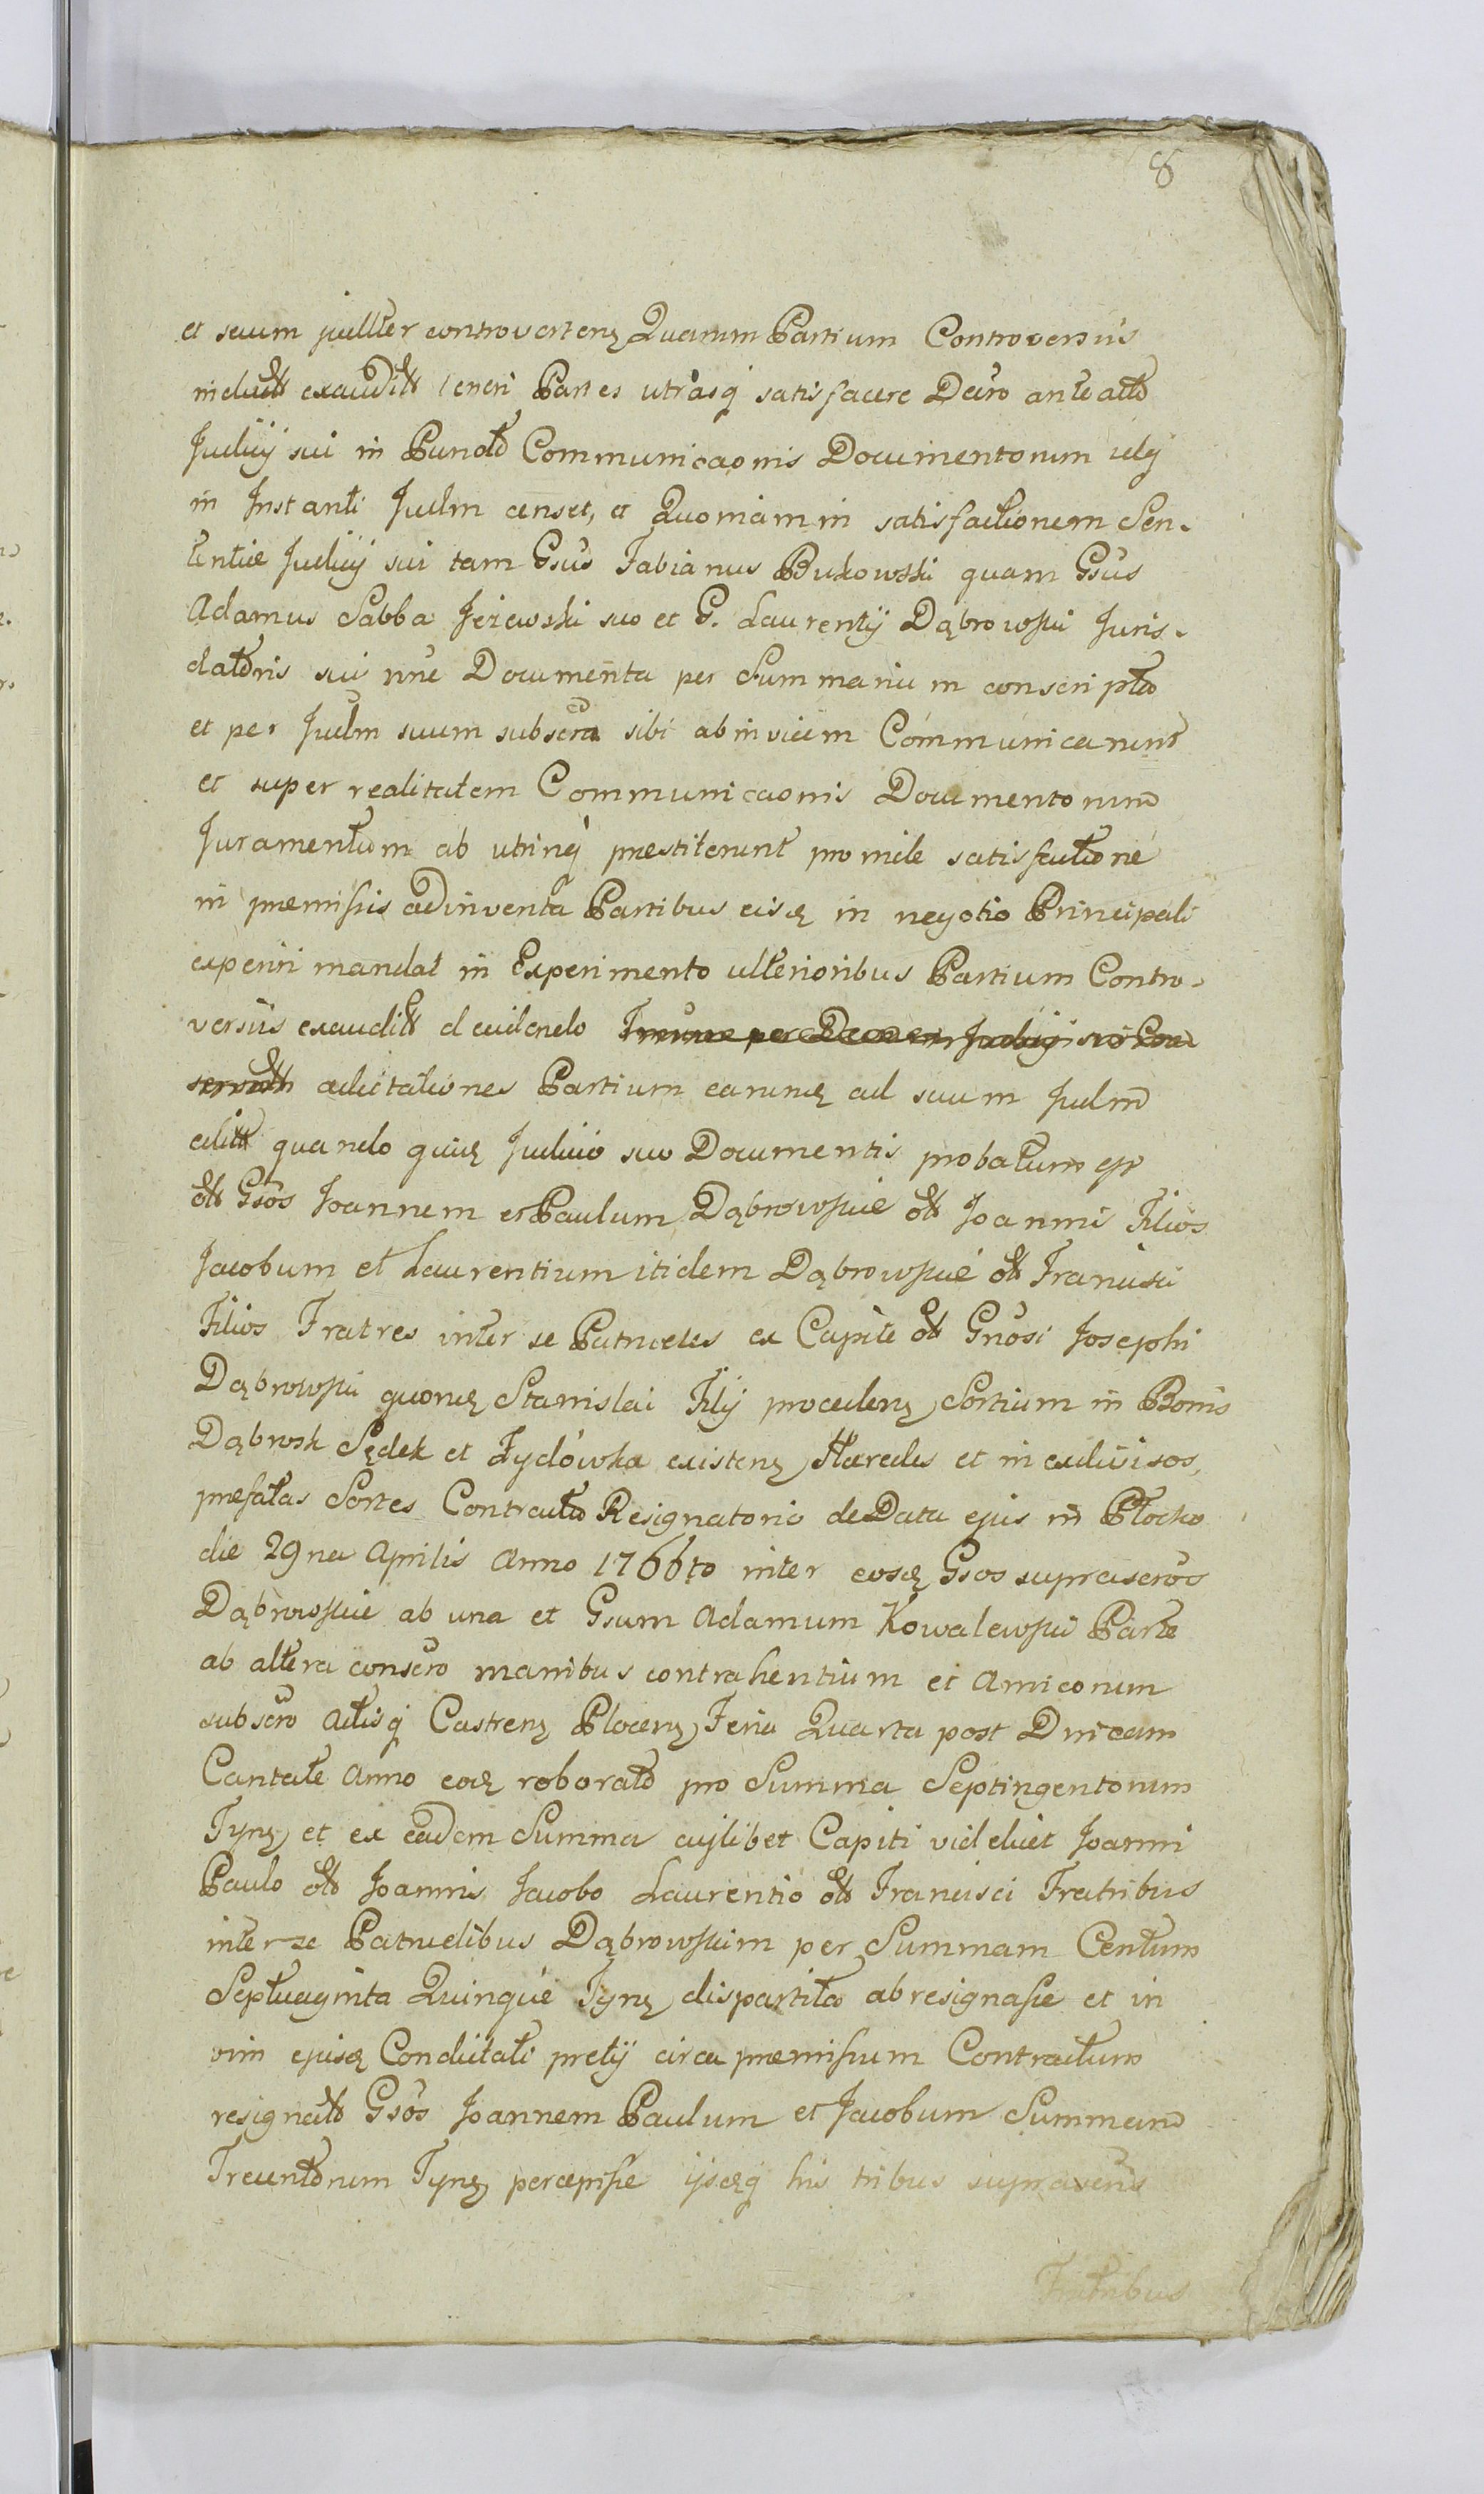 8
et secum juellter controverten Quarum Partium Controversiis
exaudit teneri Partes utrasq satisfacere Decro anteacto
Judicij sui in Puncto Communicaonis Documentorum
in Instanti Judm censet, et Quoniam in satisfactionem Sen-
tentiæ Judicij sui tam Gsus Fabianus Bukowski quam Gsus
Adamus Sabba Jeżewski suo et G. Laurentij Dąbrowski Juris-
datoris sui nne Documenta per Summarium conscripta
et per Judm suum subscra sibi abinvicem Communicarunt
et super realitatem Communicaonis Documentorum
Juramentum ab utrinq præstiterunt proinde satisfactione
in præmissis adinventa Partibus eisd in negotio Principali
experiri mandat in Experimento ulterioribus Partium Contro-
versiis exaudit decidendo
adcitationes Partium earund ad suum Judm
quando quid Judicio suo Documentis probatum est
olt Gsos Joannem et Paulum Dąbrowskie olt Joannis Filios
Jacobum et Laurentium itidem Dąbrowskie olt Francisci
Filios Fratres inter se Patrueles ex Capite olt Gnosi Josephi
Dąbrowski quond Stanislai Filij proceden Sortium in Bonis
Dąbrosk Sędek et Żydówka existen Hæredes et inexdivisos,
præfatas Sortes Contractu Resignatorio de Data ejus in Płocko
die 29na Aprilis Anno 1766to inter eosd Gsos suprascros
Dąbrowskie ab una et Gsum Adamum Kowalewski Parte
ab altera conscro manibus contrahentium et Amicorum
subscro Actisq Castren Plocen Feria Quarta post Dnicam
Cantate Anno eod roborato pro Summa Septingentorum
Tyn et ex eadem Summa cujlibet Capiti videlicet Joanni
Paulo olt Joannis Jacobo Laurentio olt Francisci Fratribus
inter se Patruelibus Dąbrowskim per Summam Centum
Septuaginta Quinque Tyn dispartita abresignasse et in
vim ejusd Condictati pretij circa præmissum Contractum
resignat Gsos Joannem Paulum et Jacobum Summam
Trecentorum Tyn percepisse ijsdq his tribus suprascris
Fratribus